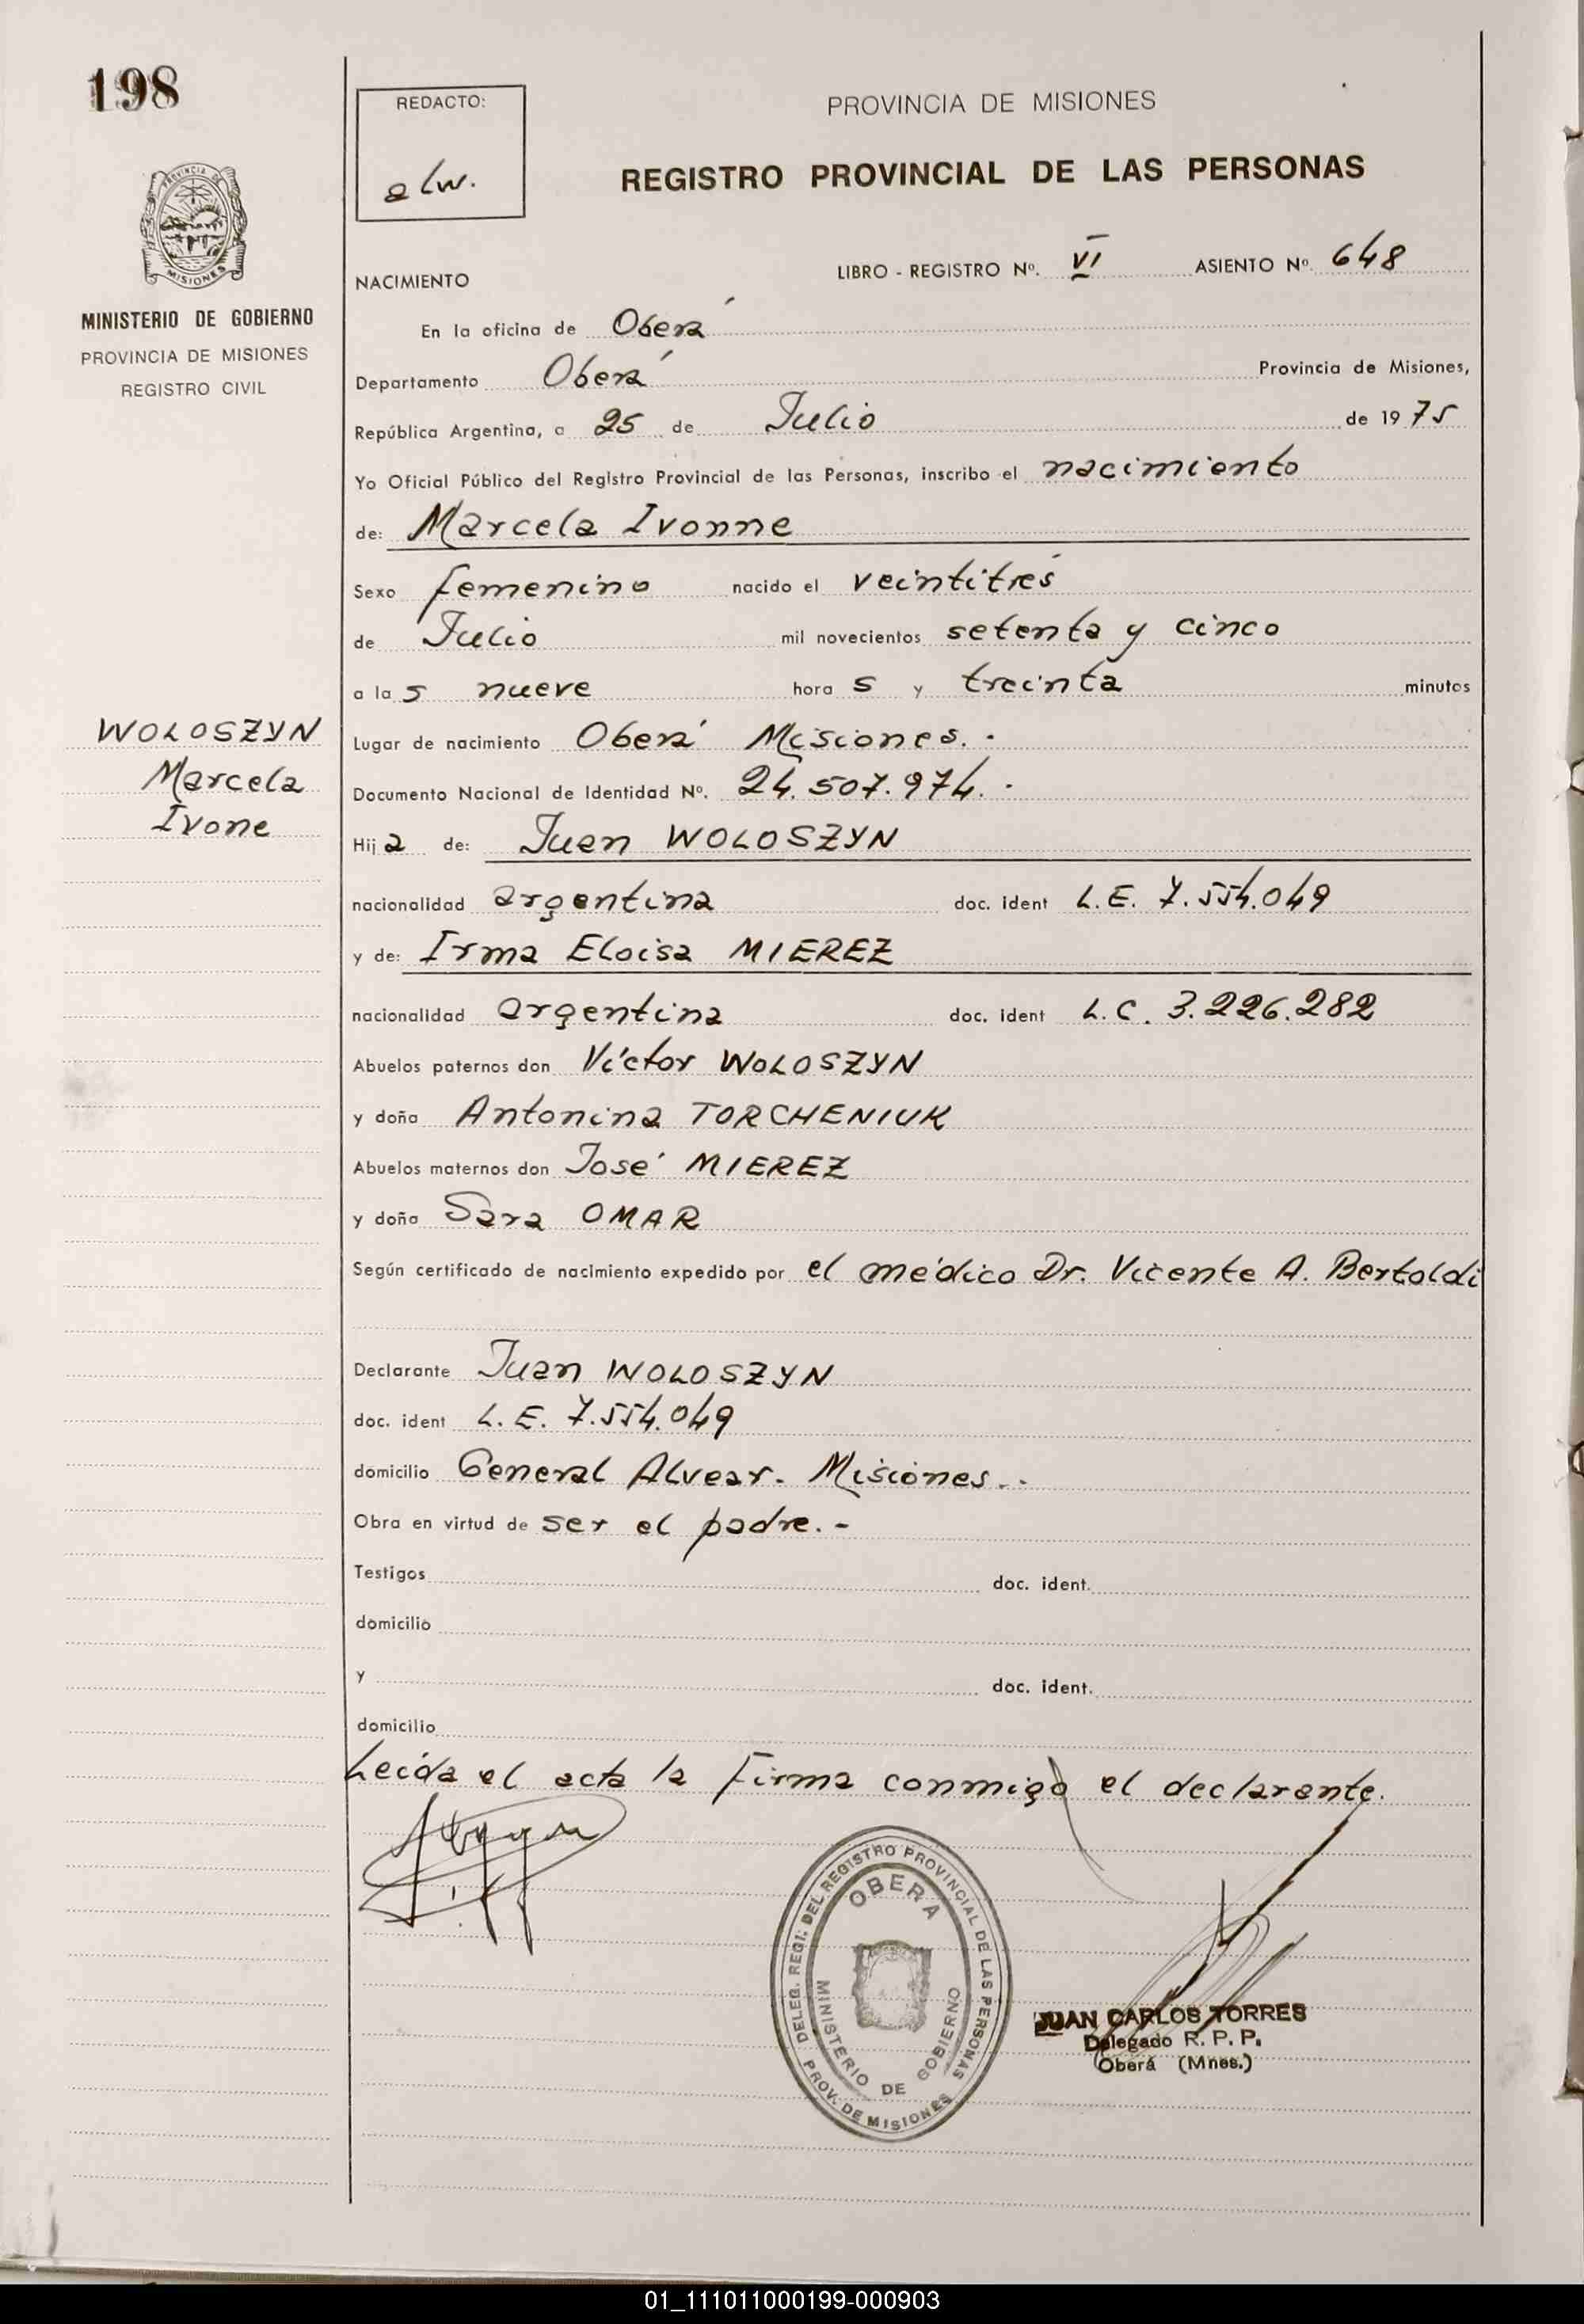 198
REDACTO:
alw.
PROVINCIA DE MISIONES
REGISTRO PROVINCIAL DE LAS PERSONAS
PROVINCIA DE
MISIONES
MINISTERIO DE GOBIERNO
PROVINCIA DE MISIONES
REGISTRO CIVIL
NACIMIENTO LIBRO - REGISTRO Nº. VI ASIENTO Nº. 648
En la oficina de Oberá
Departamento Oberá Provincia de Misiones,
República Argentina, a 25 de Julio de 1975
Yo Oficial Público del Registro Provincial de las Personas, inscribo el nacimiento
de: Marcela Ivonne
Sexo femenino nacido el veintitrés
de Julio mil novecientos setenta y cinco
a las nueve horas y treinta minutos
WOLOSZYN
Marcela
Ivone
Lugar de nacimiento Oberá Misiones.-
Documento Nacional de Identidad Nº. 24.507.974.-
Hija de: Juan WOLOSZYN
nacionalidad argentina doc. ident L.E. 7.554.049
y de: Irma Eloisa MIEREZ
nacionalidad argentina doc. ident L.C. 3.226.282
Abuelos paternos don Víctor WOLOSZYN
y doña Antonina TORCHENIUK
Abuelos maternos don José MIEREZ
y doña Sara OMAR
Según certificado de nacimiento expedido por el médico Dr. Vicente A. Bertoldi
Declarante Juan WOLOSZYN
doc. ident L.E. 7.554.049
domicilio General Alvear. Misiones.-
Obra en virtud de ser el padre.-
Testigos doc. ident.
domicilio
y doc. ident.
domicilio
Leída el acta la firma conmigo el declarante.
DELEG. REGI. DEL REGISTRO PROVINCIAL DE LAS PERSONAS
OBERA
MINISTERIO DE GOBIERNO
PROV. DE MISIONES
JUAN CARLOS TORRES
Delegado R. P. P.
Oberá (Mnes.)
01_111011000199-000903